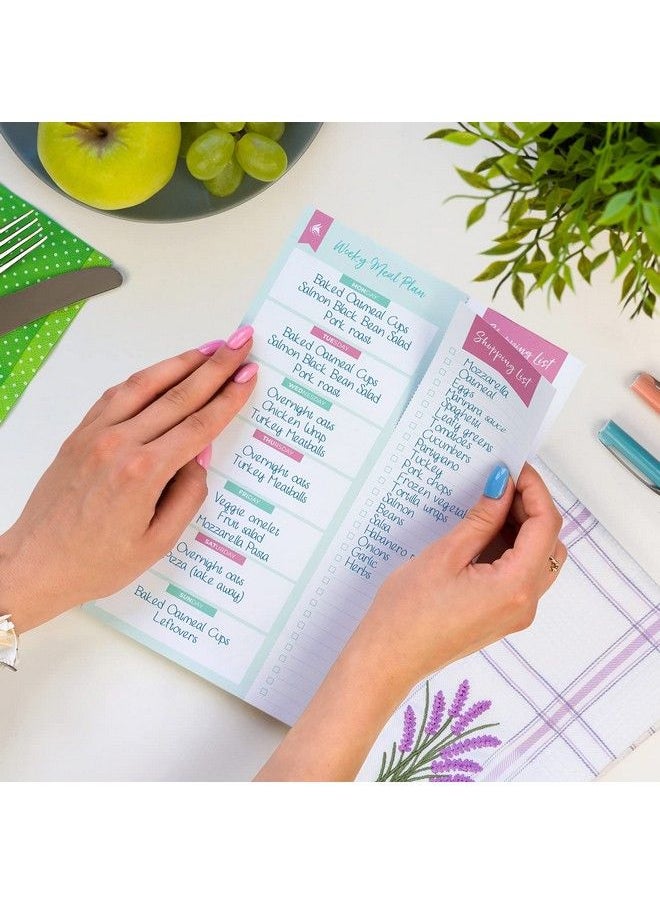 Weeky Meal Plan
MONDAY
Baked Oatmeal Cups
Salmon Black Bean Salad
Pork roast
TUESDAY
Baked Oatmeal Cups
Salmon Black Bean Salad
Pork roast
WEDNESDAY
Overnight oats
Chicken Wrap
Turkey Meatballs
THURSDAY
Overnight oats
Turkey Meatballs
FRIDAY
Veggie omelet
Fruit salad
Mozzarella Pasta
SATURDAY
Overnight oats
(take away)
SUNDAY
Baked Oatmeal Cups
Leftovers
Shopping List
Shopping List
Mozzarella
Oatmeal
Eggs
Marinara sauce
Spaghetti
Leafy greens
Tomatoes
Cucumbers
Parmigiano
Turkey
Pork chops
Frozen
Tortilla wraps
Salmon
Beans
Salsa
Habanero
Onions
Garlic
Herbs